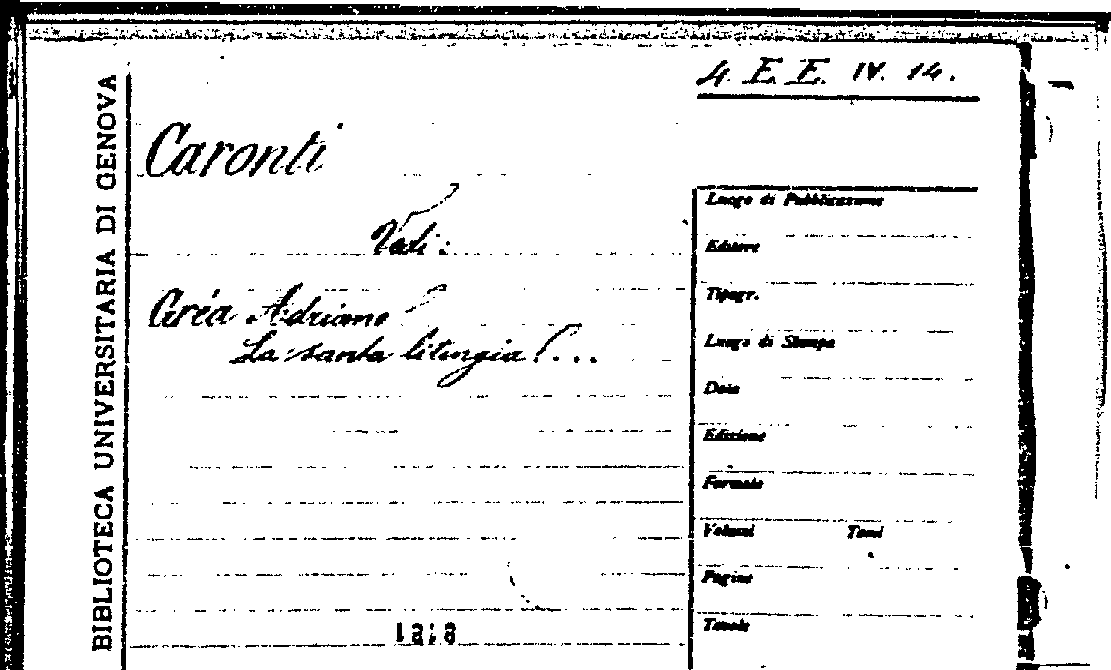 4. E. E. IV. 14.
BIBLIOTECA UNIVERSITARIA DI GENOVA
Caronti
Vedi:
Adriano
La santa liturgia
Luogo di Pubblicazione
Editore
Tipogr.
Luogo di Stampa
Data
Edizione
Formato
Volumi Tomi
Pagine
Tavole